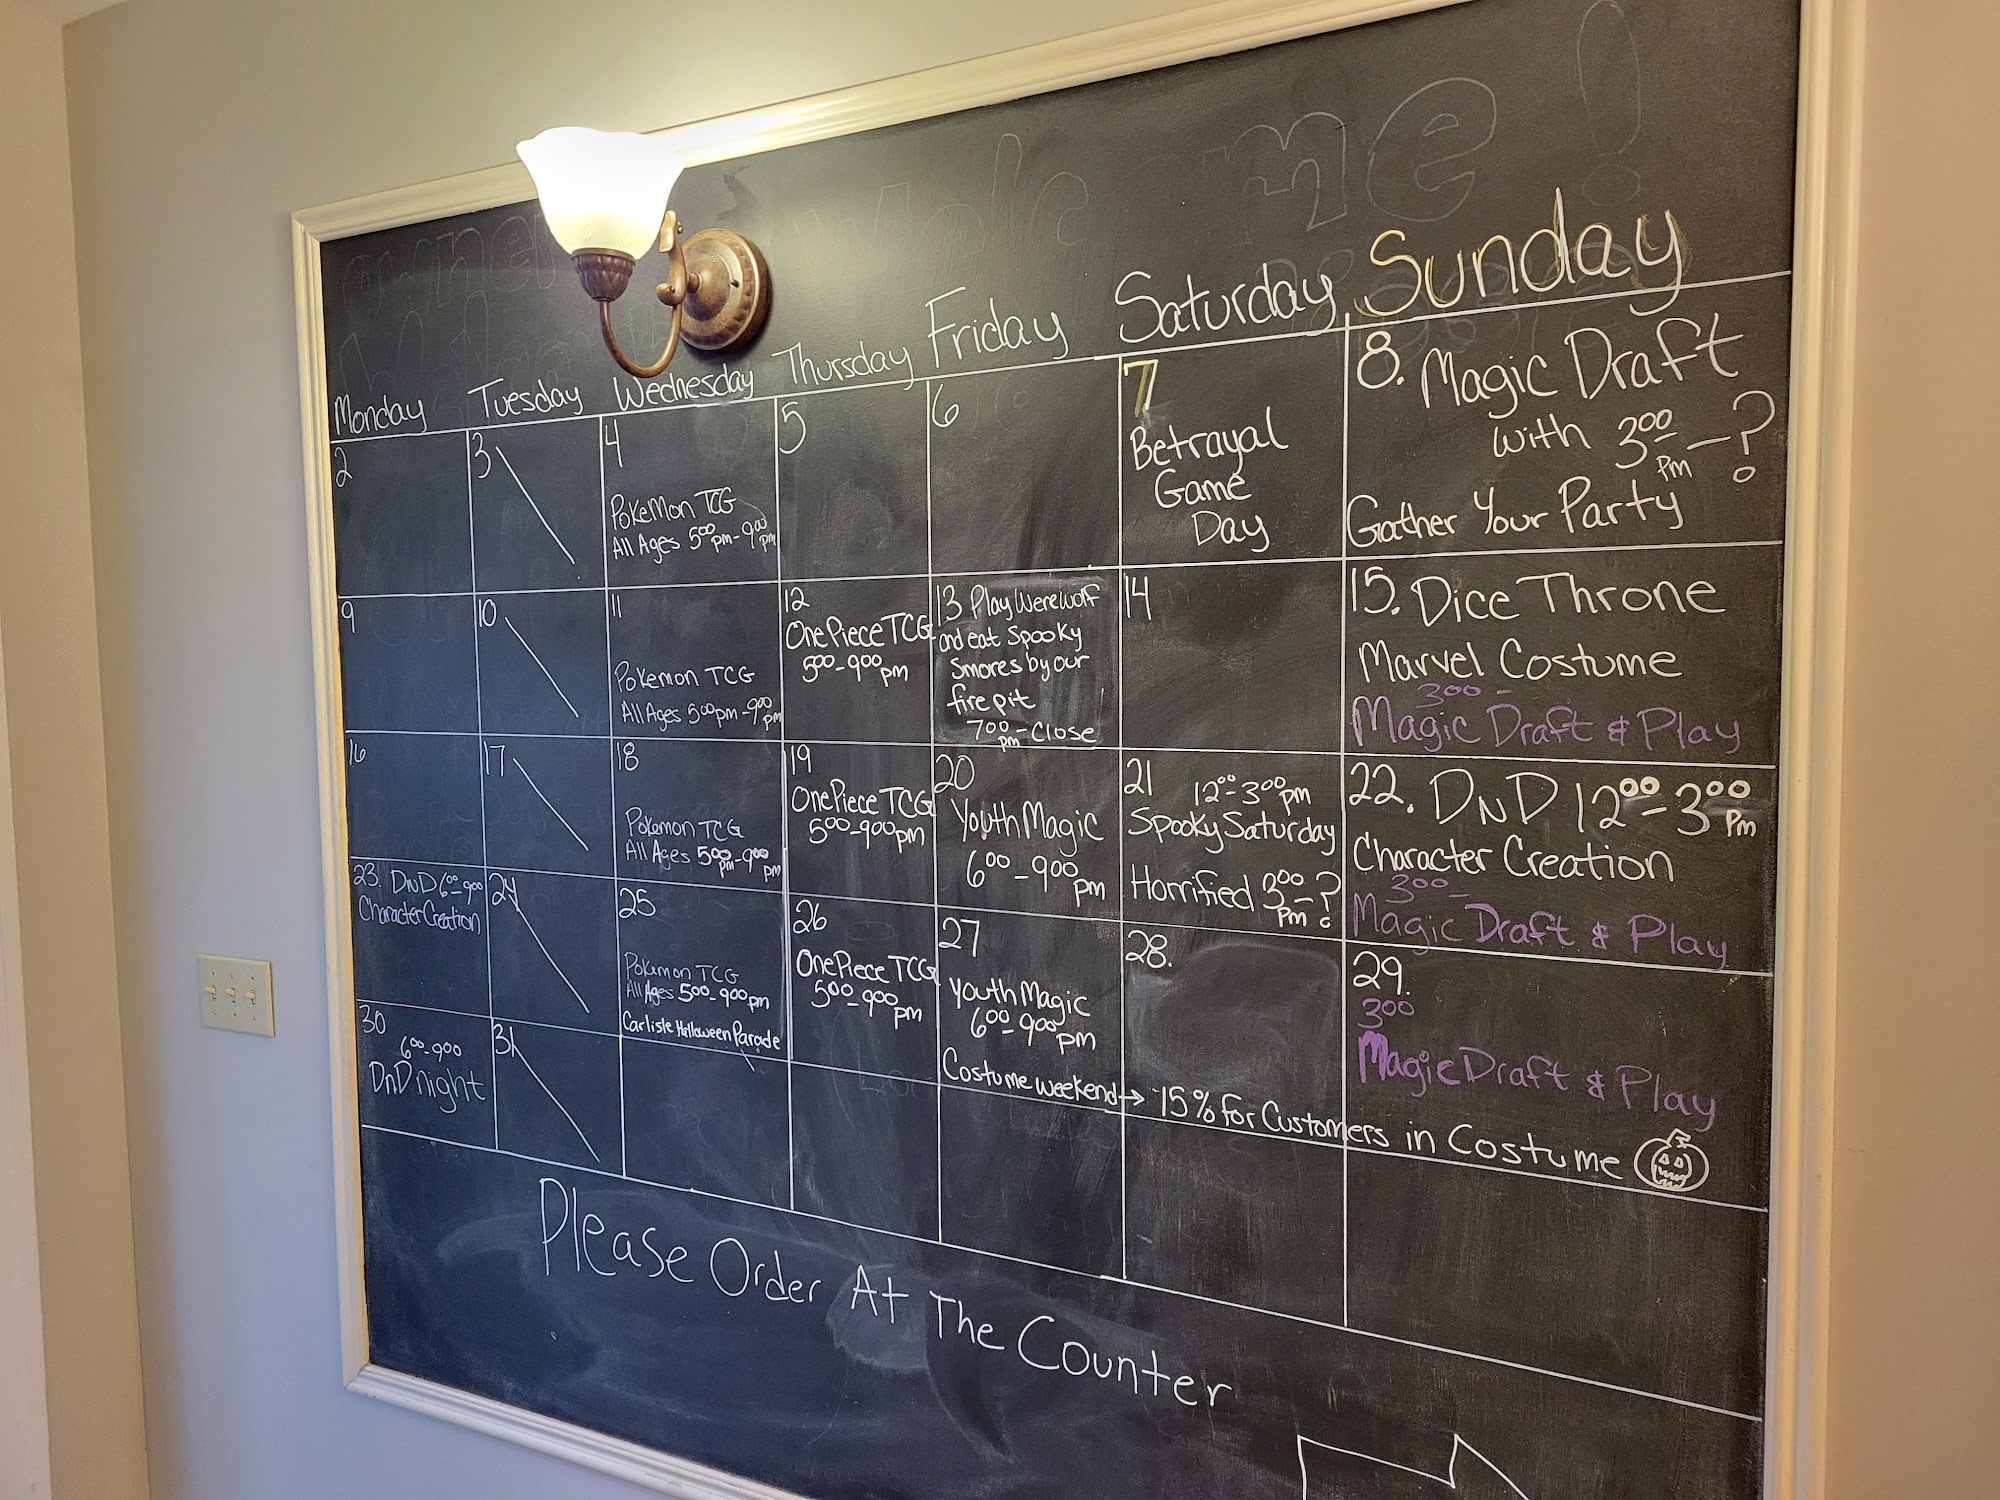 Welcome!
Monday Tuesday Wednesday Thursday Friday Saturday Sunday
2
3
4
Pokemon TCG
All Ages 5⁰⁰pm-9⁰⁰pm
5
6
7
Betrayal
Game
Day
8. Magic Draft
with 3⁰⁰pm-?
Gather Your Party
9
10
11
Pokemon TCG
All Ages 5⁰⁰pm-9⁰⁰pm
12
One Piece TCG
5⁰⁰-9⁰⁰pm
13 Play Werewolf
and eat Spooky
Smores by our
fire pit
7⁰⁰pm-Close
14
15. Dice Throne
Marvel Costume
3⁰⁰-
Magic Draft & Play
16
17
18
Pokemon TCG
All Ages 5⁰⁰pm-9⁰⁰pm
19
One Piece TCG
5⁰⁰-9⁰⁰pm
20
Youth Magic
6⁰⁰-9⁰⁰pm
21 12⁰⁰-3⁰⁰pm
Spooky Saturday
Horrified 3⁰⁰pm-?
22. DnD 12⁰⁰-3⁰⁰pm
Character Creation
3⁰⁰-
Magic Draft & Play
23. DnD 6⁰⁰-9⁰⁰
Character Creation
24
25
Pokemon TCG
All Ages 5⁰⁰-9⁰⁰pm
Carlisle Halloween Parade
26
One Piece TCG
5⁰⁰-9⁰⁰pm
27
Youth Magic
6⁰⁰-9⁰⁰pm
Costume weekend→ 15% for Customers in Costume
28.
29.
3⁰⁰
Magic Draft & Play
30
6⁰⁰-9⁰⁰
DnD night
31
Please Order At The Counter